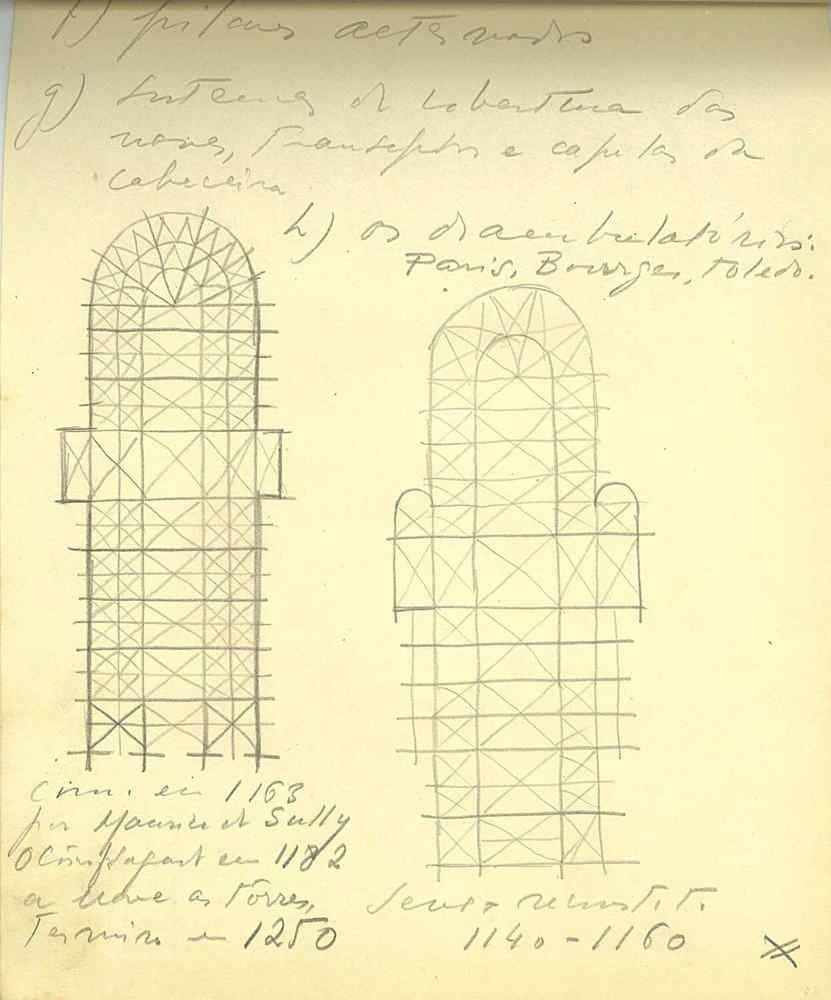 f) pilares alternados
g) Sistemas de cobertura das
naves, transeptos e capelas da
cabeceira
h) os deambulatórios:
Paris, Bourges, Toledo.
Com. em 1163
por Maurice de Sully
em 1182
a nave as tôrres,
Termino em 1250
Sens
1140-1160